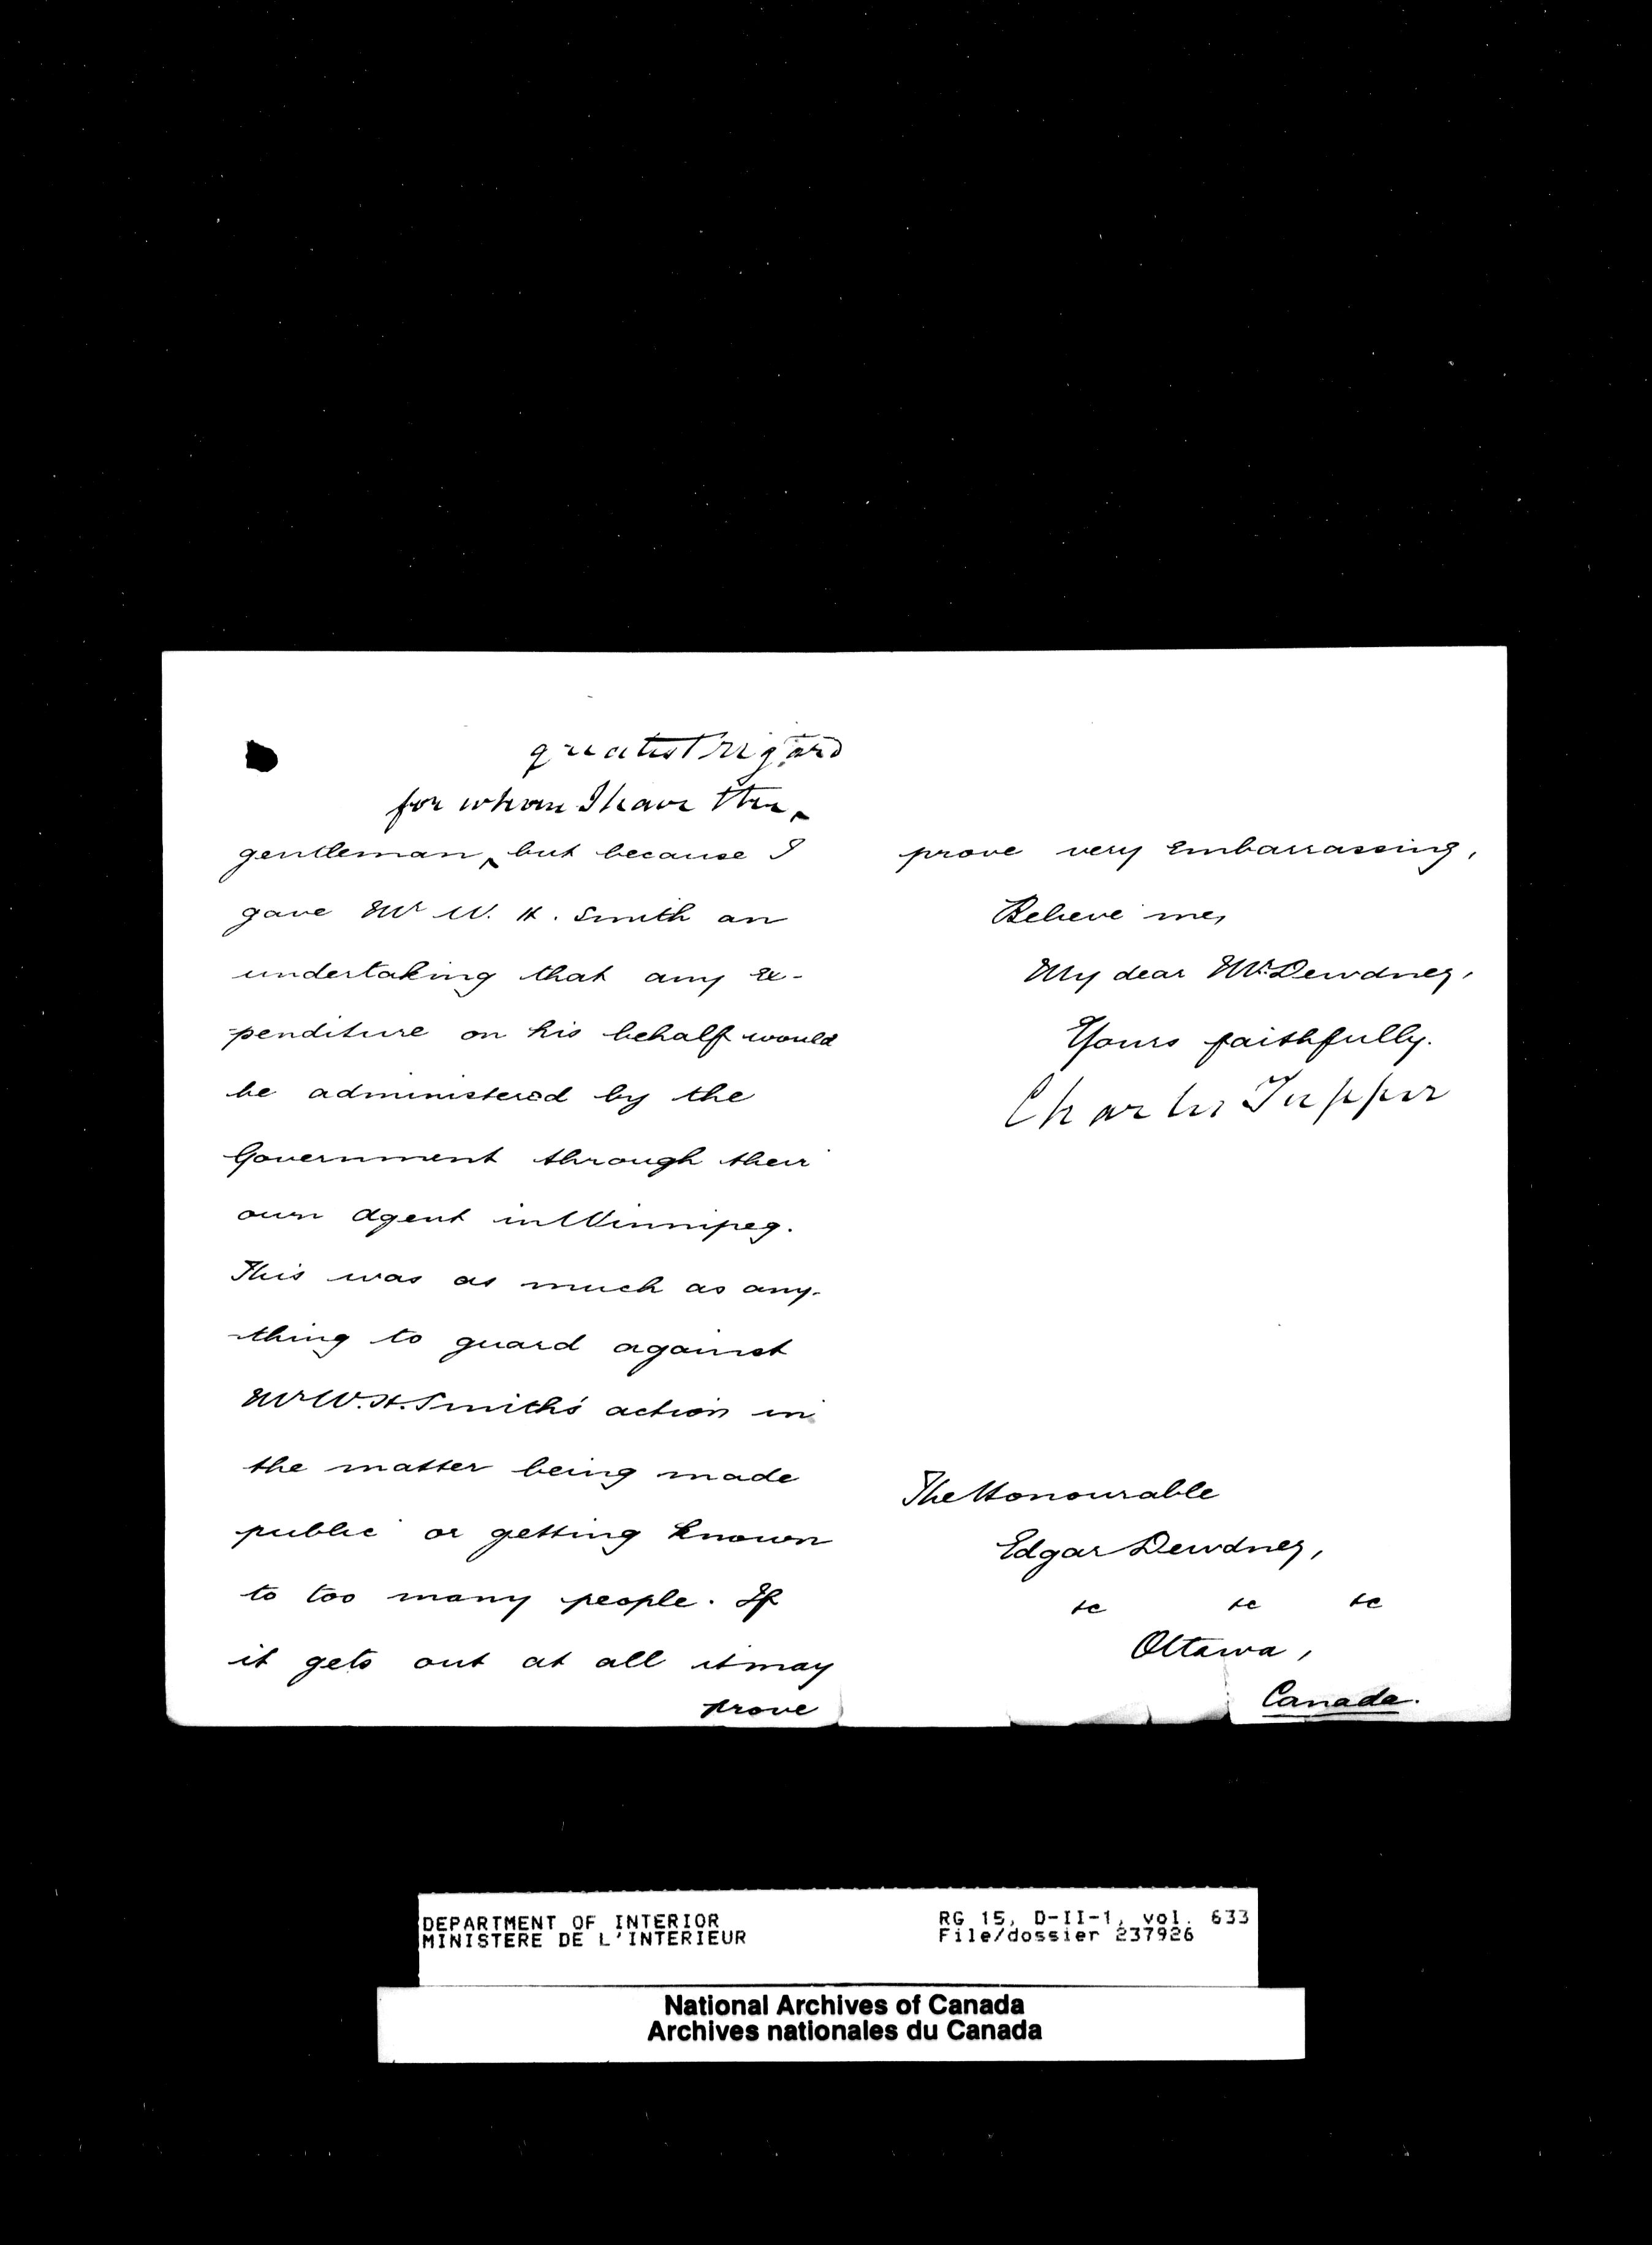 greatest regard
for whom I have the
gentleman, but because I
gave Mr W. H. Smith an
undertaking that any ex-
penditure on his behalf would
be administered by the
Government through their
own agent in Winnipeg.
This was as much as any-
thing to guard against
Mr W. H. Smith's action in
the matter being made
public or getting known
to too many people. If
it gets out at all it may
prove
prove very embarrassing,
Believe me,
My dear Mr. Dewdney,
Yours faithfully.
Charles Tupper
The Honourable
Edgar Dewdney,
&c &c &c
Ottawa,
Canada.
DEPARTMENT OF INTERIOR
MINISTERE DE L'INTERIEUR
RG 15, D-II-1, vol. 633
File/dossier 237926
National Archives of Canada
Archives nationales du Canada